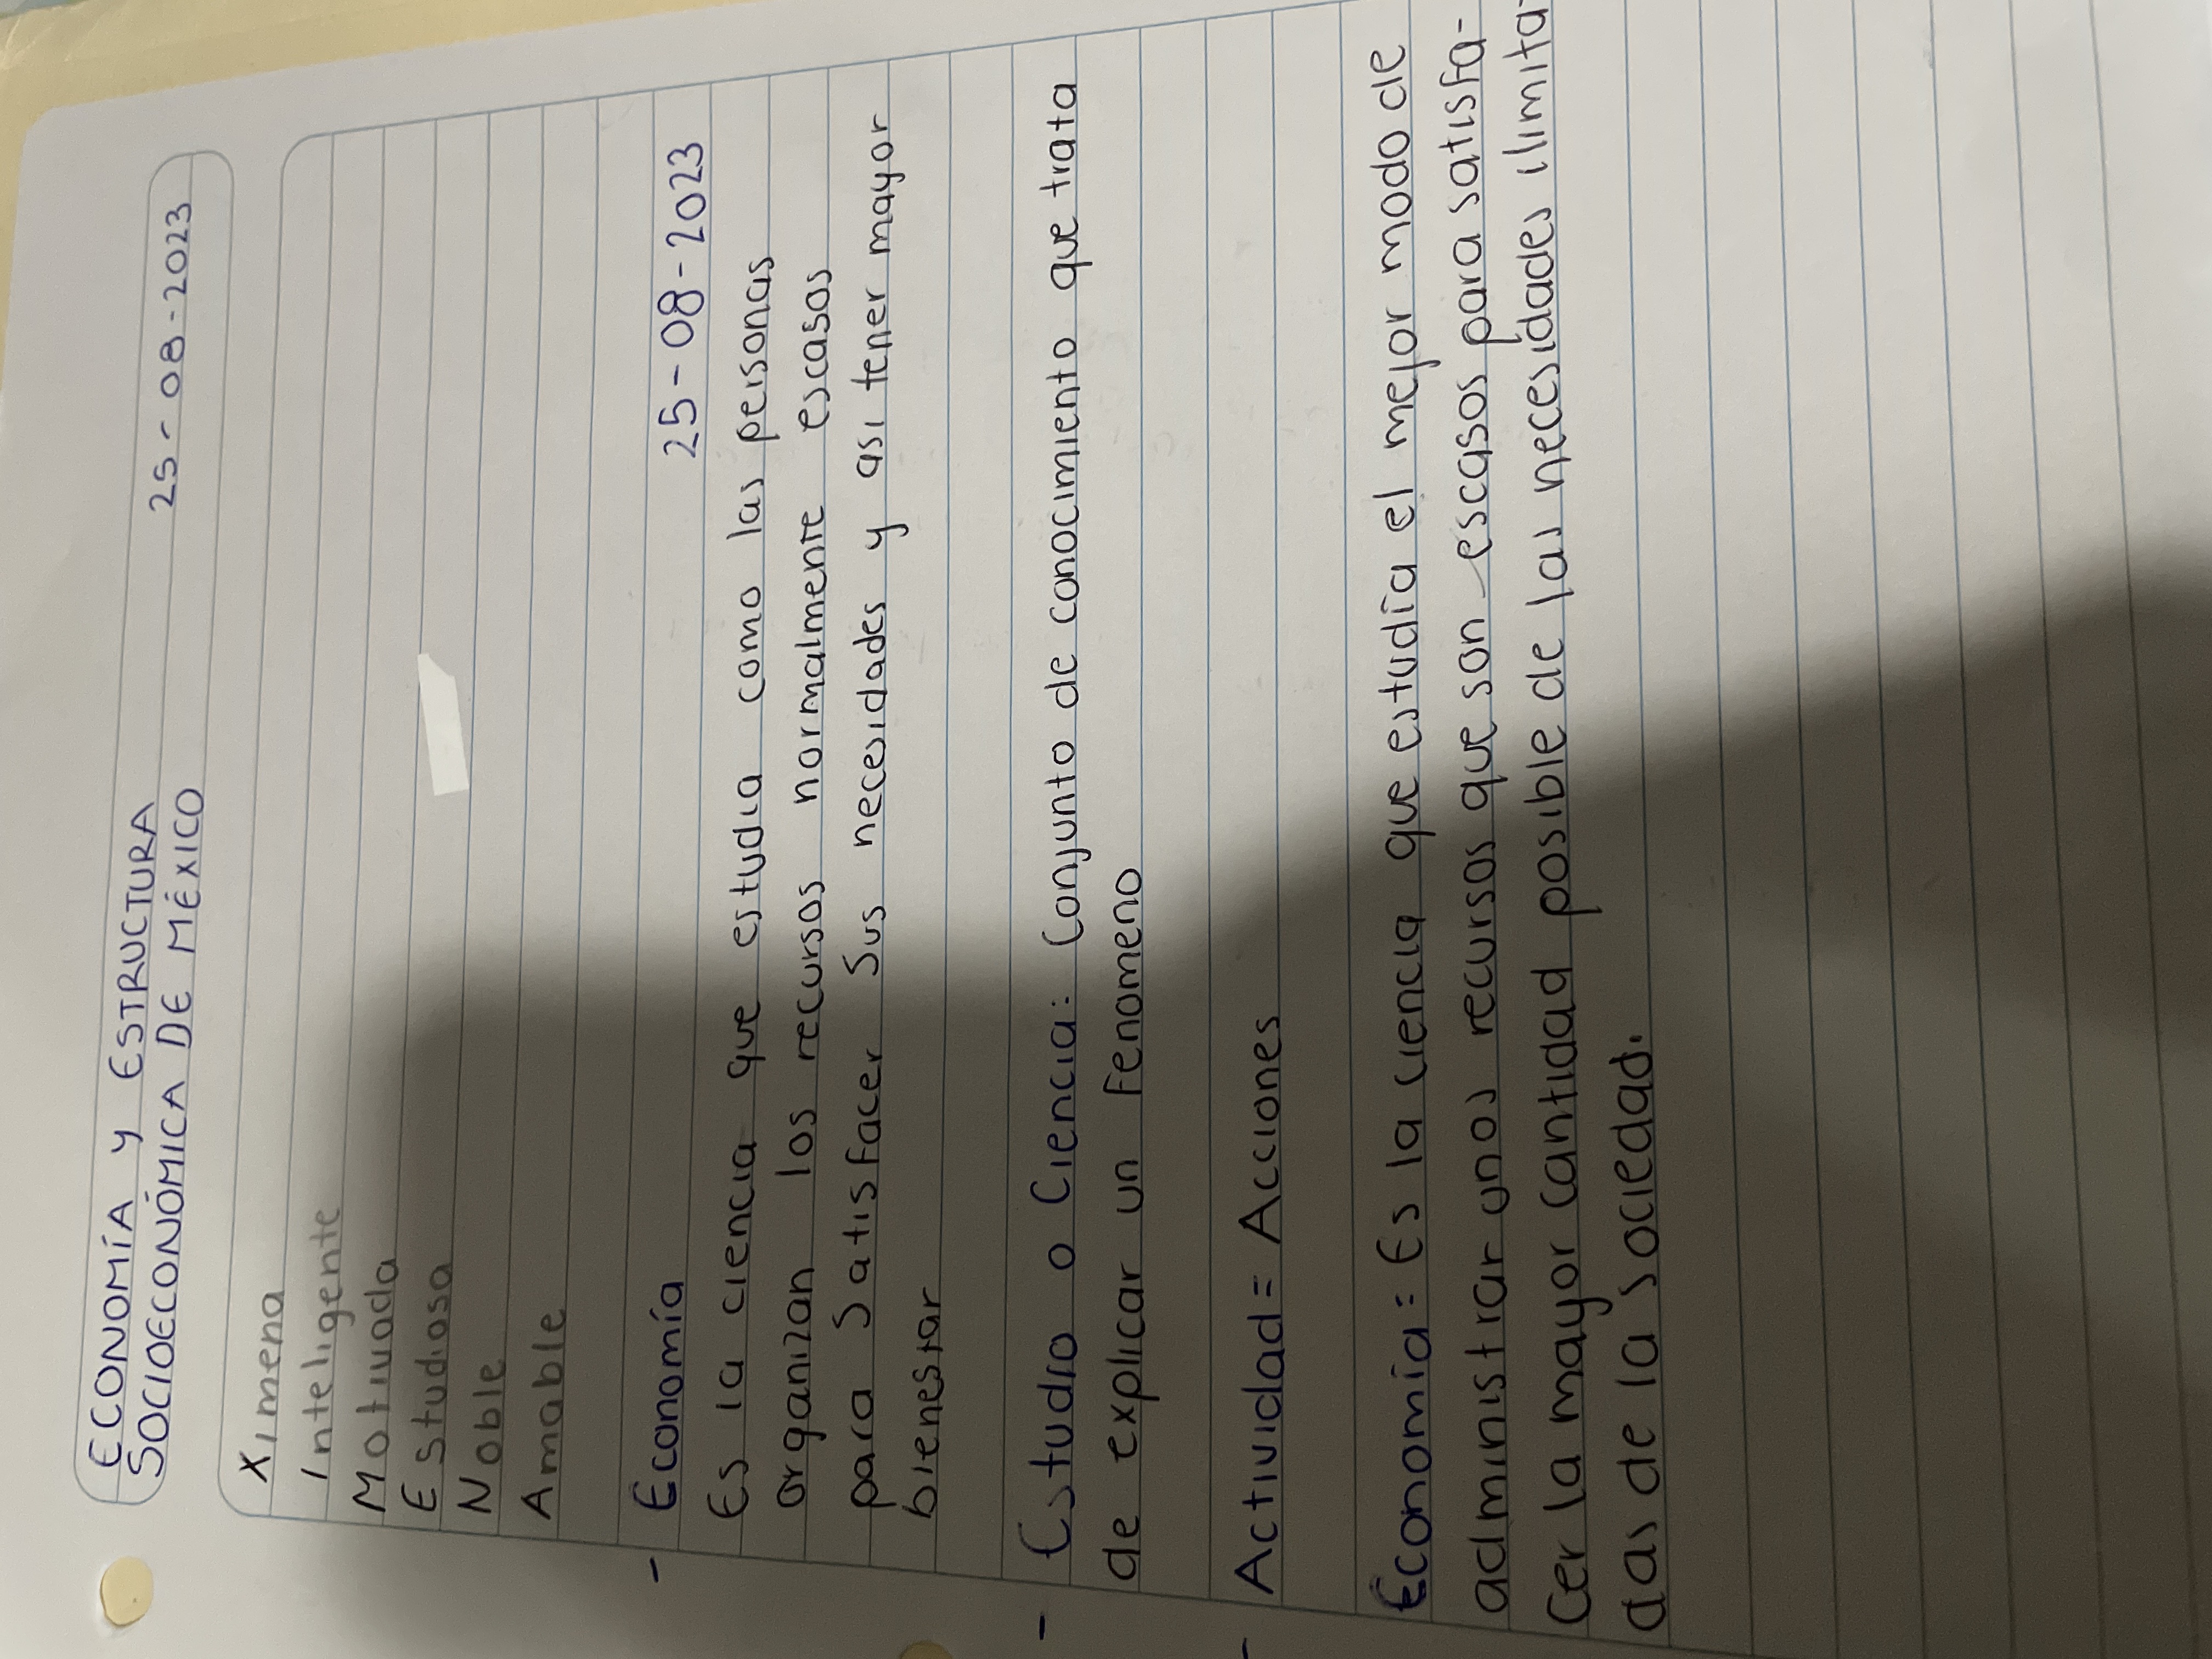 ECONOMÍA Y ESTRUCTURA
SOCIOECONÓMICA DE MÉXICO 25-08-2023
Ximena
Inteligente
Motivada
Estudiosa
Noble
Amable
- Economía 25-08-2023
Es la ciencia que estudia como las personas
organizan los recursos normalmente escasos
para Satisfacer Sus necesidades y asi tener mayor
bienestar
- Estudio o Ciencia: Conjunto de conocimiento que trata
de explicar un fenomeno
- Actividad= Acciones
Economía: Es la ciencia que estudía el mejor modo de
administrar unos recursos que son escasos para satisfa-
cer la mayor cantidad posible de las necesidades ilimita-
das de la sociedad.